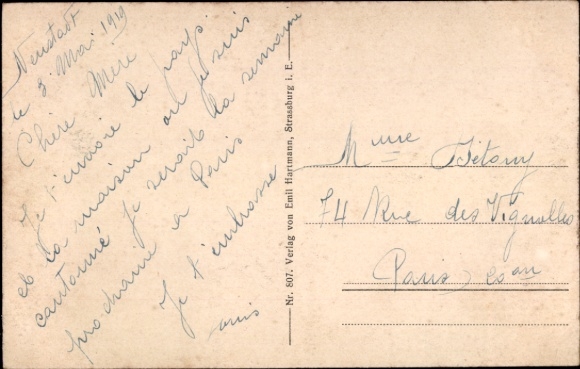 Neustadt
le 3. Mai. 1919
Chère Mère
Je t'envoie le pays
et la maison ou je suis
cantonné Je serait la semaine
prochaine a Paris
Je t'embrasse
Nr. 807. Verlag von Emil Hartmann, Strassburg i. E.
Mme
74 Rue des Vignolles
Paris